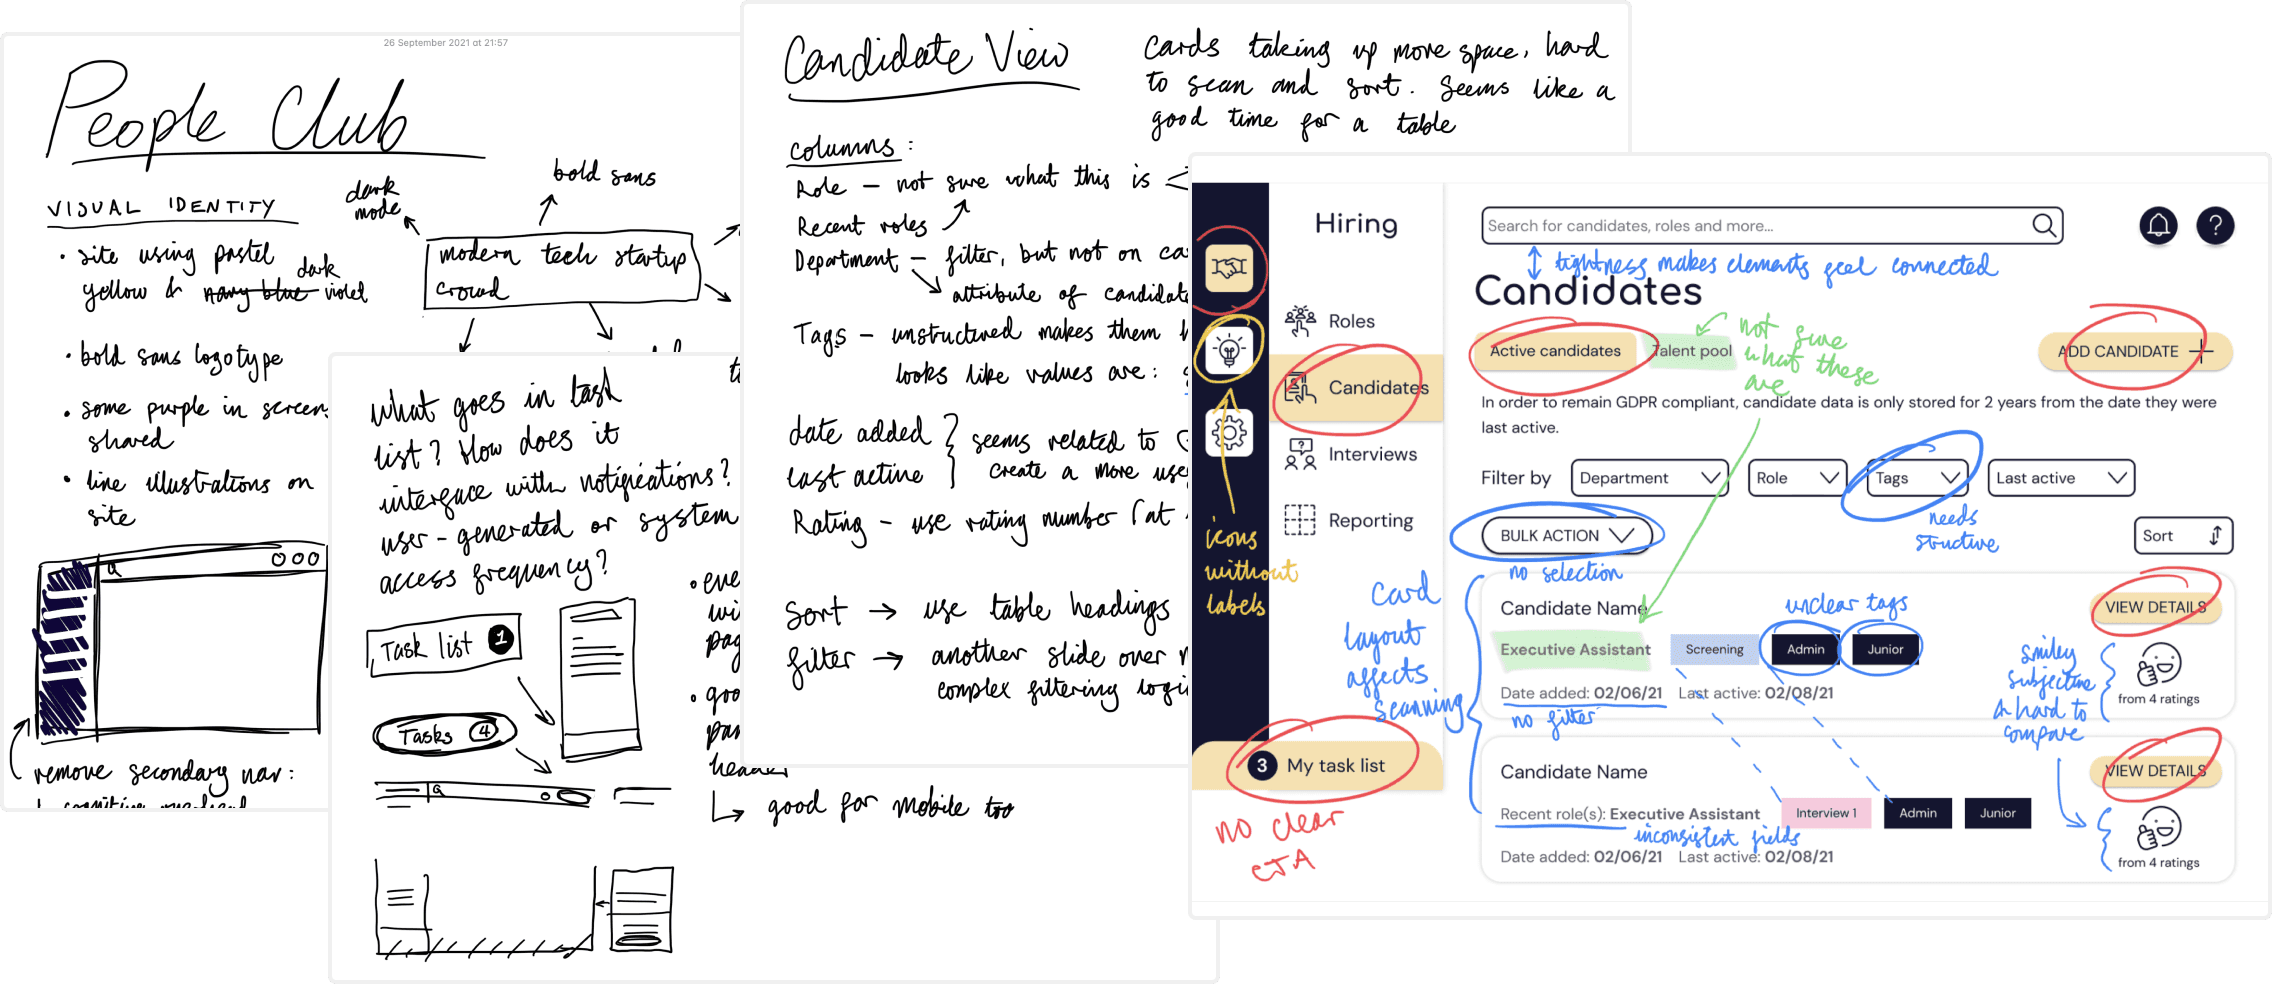 26 September 2021 at 21:57
People Club
VISUAL IDENTITY
• site using pastel
yellow & navy blue dark violet
• bold sans logotype
• some purple in screens
shared
• line illustrations on
site
dark
mode
bold sans
modern tech startup
crowd
remove secondary nav:
What goes in task
list? How does it
interface with notifications?
user-generated or system
access frequency?
Task list 1
Tasks 4
header
good for mobile too
Candidate View
cards taking up more space, hard
to scan and sort. Seems like a
good time for a table
columns:
Role — not sure what this is
Recent roles
Department — filter, but not on
attribute of candidate
Tags — unstructured makes them
looks like values are:
date added
last active
seems related to
create a more
Rating — use rating number (at
Sort → use table headings
filter → another slide over
complex filtering
Hiring
Roles
Candidates
Interviews
Reporting
3 My task list
icons
without
labels
no clear
CTA
Search for candidates, roles and more...
?
tightness makes elements feel connected
Candidates
Active candidates
Talent pool
not sure
what these
are
ADD CANDIDATE
In order to remain GDPR compliant, candidate data is only stored for 2 years from the date they were
last active.
Filter by
Department
Role
Tags
Last active
needs
structure
BULK ACTION
no selection
Sort
card
layout
affects
scanning
Candidate Name
VIEW DETAILS
unclear tags
Executive Assistant
Screening
Admin
Junior
Date added: 02/06/21 Last active: 02/08/21
no filter
from 4 ratings
smiley
subjective
& hard to
compare
Candidate Name
VIEW DETAILS
Recent role(s): Executive Assistant
Interview 1
Admin
Junior
inconsistent fields
Date added: 02/06/21 Last active: 02/08/21
from 4 ratings